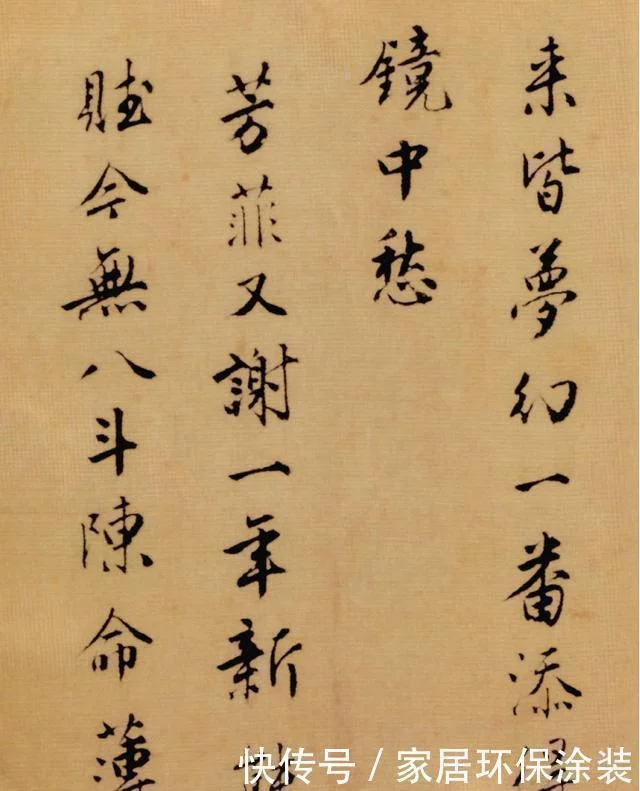 来皆夢幻一番添
鏡中愁
芳菲又謝一年新
賦今無八斗陳命薄
快传号 / 家居环保涂装